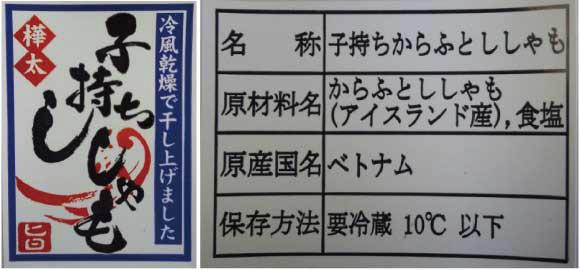 樺太
子持ち
ししゃも
冷風乾燥で干し上げました
旨
名 称 子持ちからふとししゃも
原材料名 からふとししゃも
(アイスランド産),食塩
原産国名 ベトナム
保存方法 要冷蔵 10℃ 以下